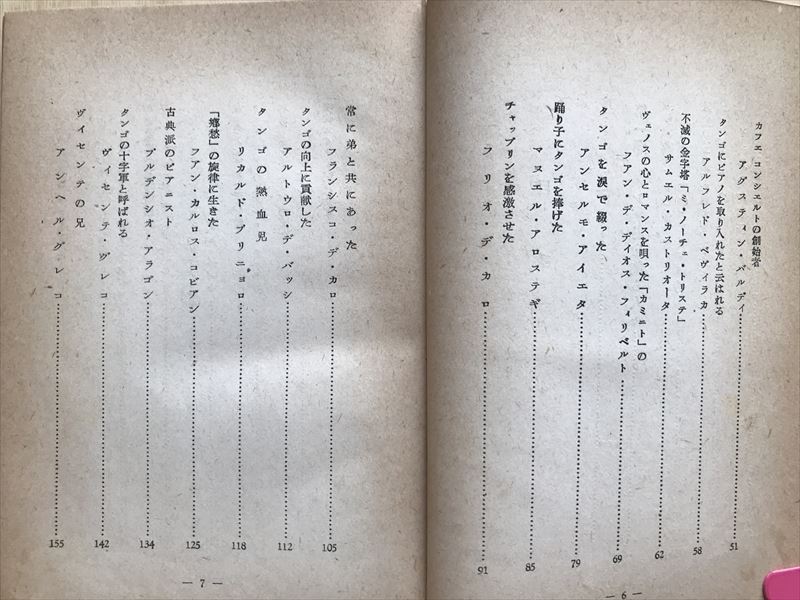 カフエ コンシエルトの創始者
アグスティン・バルディ 51
タンゴにピアノを取り入れたと云はれる
アルフレド・ベヴィラカ 58
不滅の金字塔「ミ・ノーチェ・トリステ」
サムエル・カストリオータ 62
ヴェノスの心とロマンスを唄った「カミニト」の
フアン・デ・デイオス・フィリベルト 69
タンゴを涙で綴った
アンセルモ・アイエタ 79
踊り子にタンゴを捧げた
マヌエル・アロステギ 85
チャップリンを感激させた
フリオ・デ・カロ 91
— 6 —
常に弟と共にあった
フランシスコ・デ・カロ 105
タンゴの向上に貢献した
アルトウロ・デ・バッシ 112
タンゴの熱血児
リカルド・ブリニョロ 118
「郷愁」の旋律に生きた
フアン・カルロス・コビアン 125
古典派のピアニスト
プルデンシオ・アラゴン 134
タンゴの十字軍と呼ばれる
ヴィセンテ・グレコ 142
ヴイセンテの兄
アンヘル・グレコ 155
— 7 —